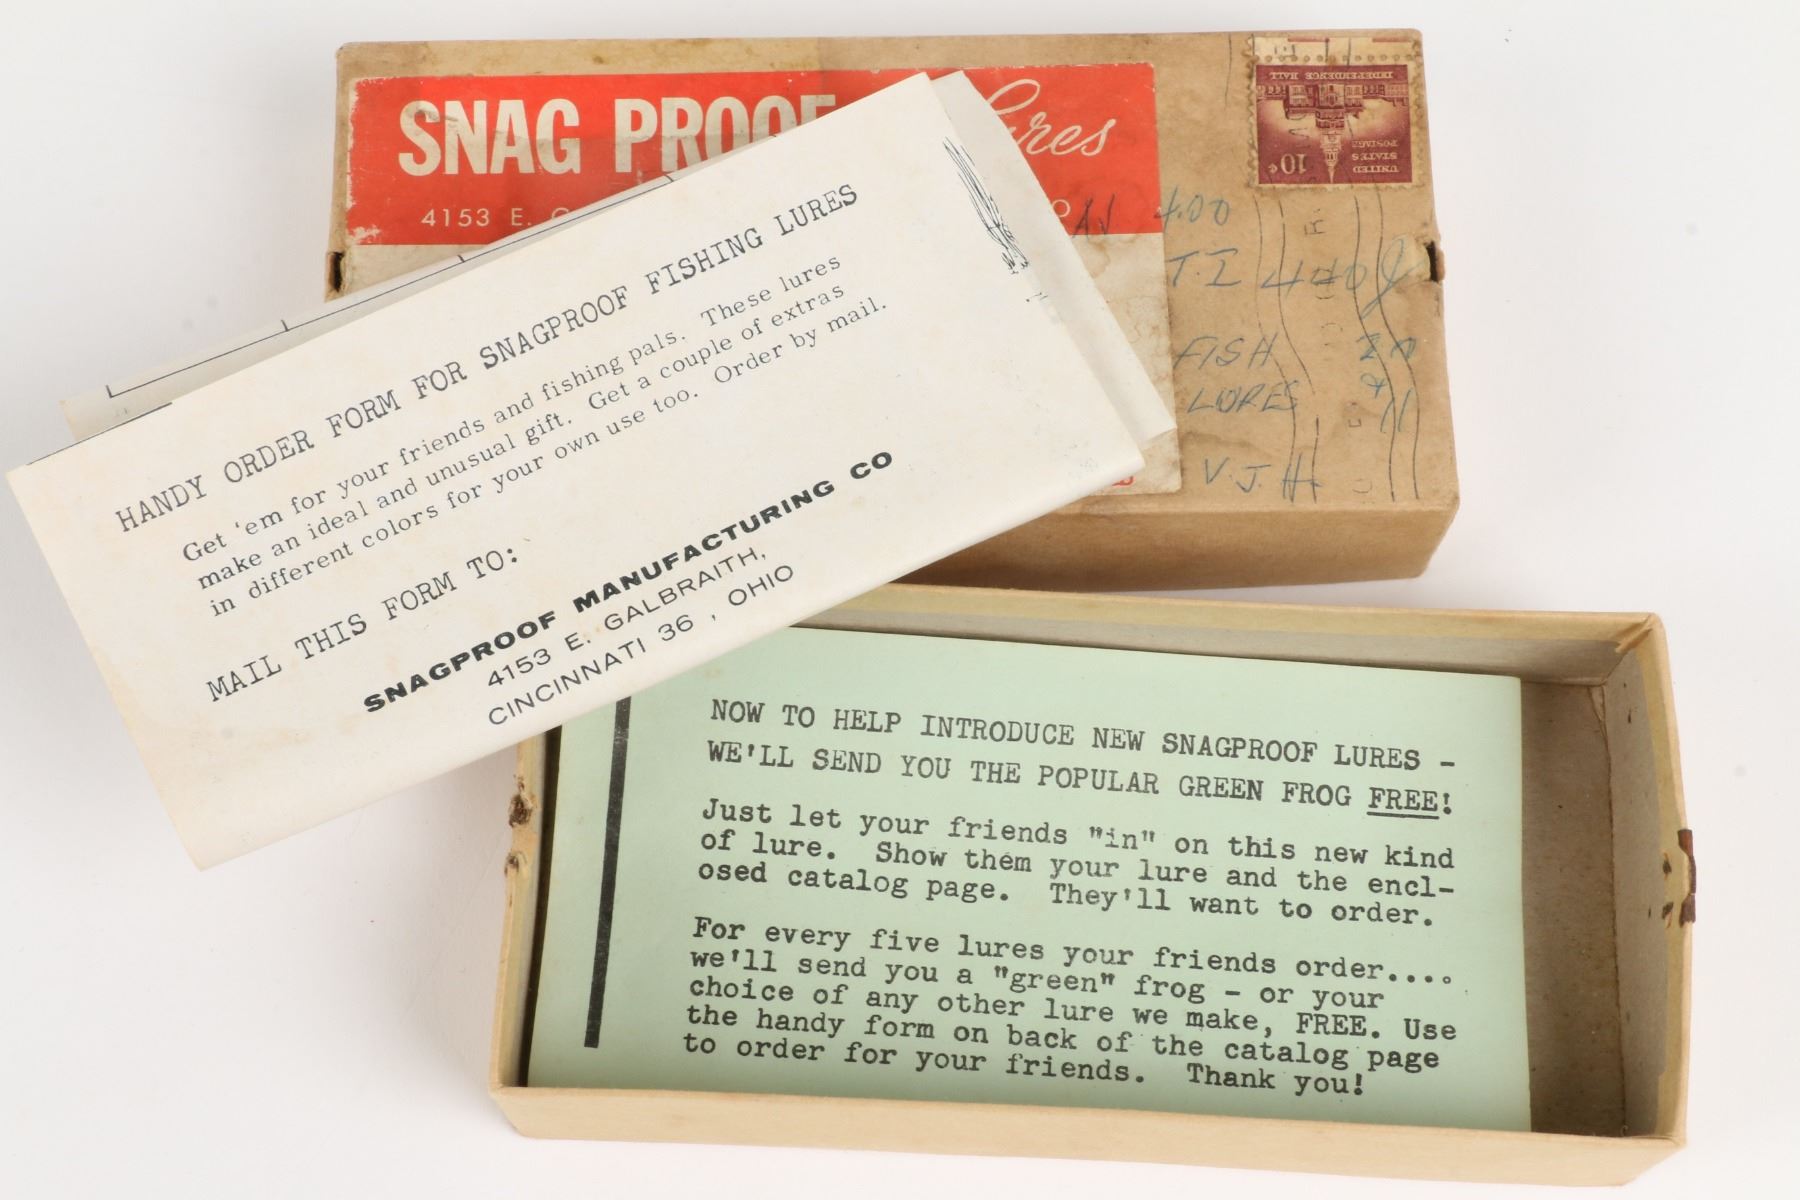 SNAG PROOF Lures
4153 E.
O
AV 4.00
T.I 440
FISH
LURES
V.J.H.
INDEPENDENCE HALL
10¢
UNITED
STATES
POSTAGE
HANDY ORDER FORM FOR SNAGPROOF FISHING LURES
Get 'em for your friends and fishing pals. These lures
make an ideal and unusual gift. Get a couple of extras
in different colors for your own use too. Order by mail.
MAIL THIS FORM TO:
SNAGPROOF MANUFACTURING CO
4153 E. GALBRAITH,
CINCINNATI 36 , OHIO
NOW TO HELP INTRODUCE NEW SNAGPROOF LURES -
WE'LL SEND YOU THE POPULAR GREEN FROG FREE!
Just let your friends "in" on this new kind
of lure. Show them your lure and the encl-
osed catalog page. They'll want to order.
For every five lures your friends order....
we'll send you a "green" frog - or your
choice of any other lure we make, FREE. Use
the handy form on back of the catalog page
to order for your friends. Thank you!